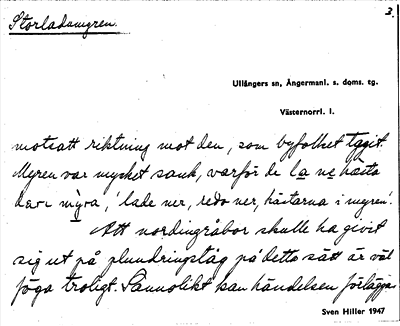 Storladamyren.
3.
Ullångers sn, Ångermanl. s. doms. tg.
Västernorrl. l.
motsatt riktning mot den, som byfolket tagit.
Myren var mycket sank, varför de la ne hästa
i myra, 'lade ner, redo ner, hästarna i myren'.
Att nordingråbor skulle ha givit
sig ut på plundringståg på detta sätt är väl
föga troligt. Sannolikt kan händelsen förläggas
Sven Hiller 1947